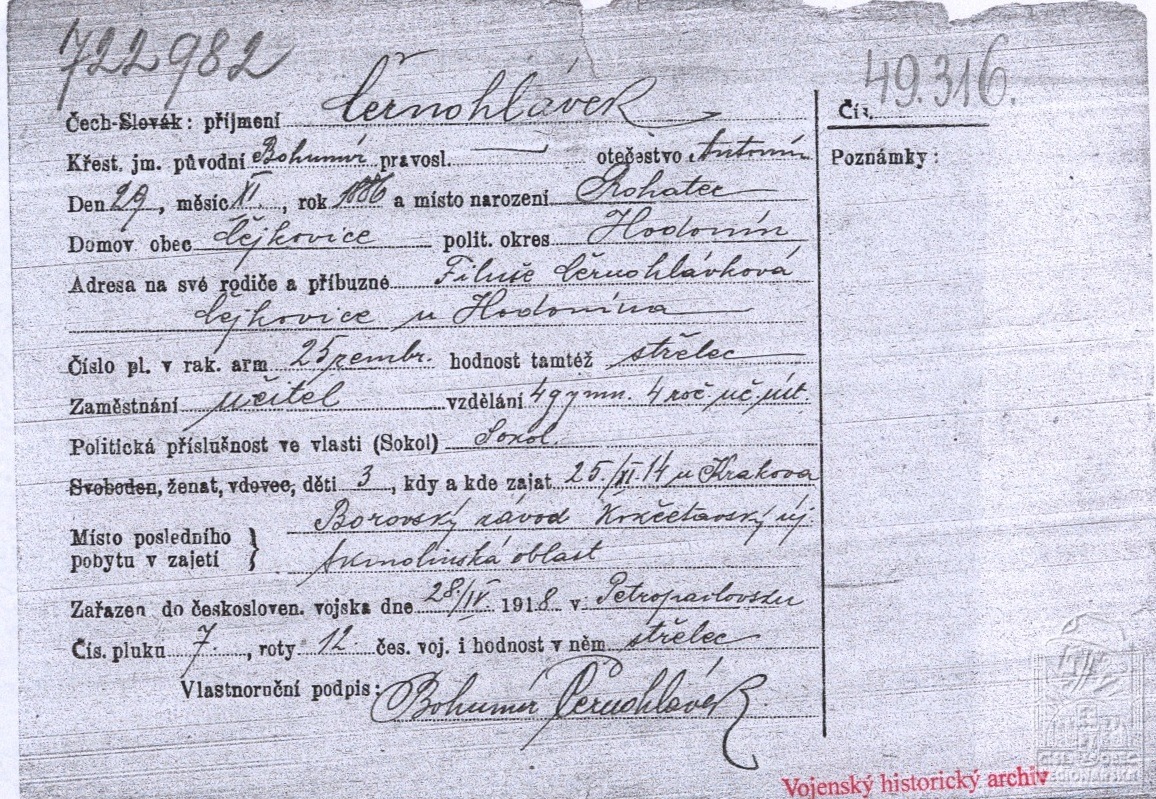 722982
49.316.
Čech-Slovák: příjmení Černohlávek
Čís.
Křest. jm. původní Bohumír pravosl. — otečestvo Antonín
Poznámky:
Den 29, měsíc XI., rok 1886 a místo narození Rohatec
Domov. obec Čejkovice polit. okres Hodonín
Adresa na své rodiče a příbuzné Filuše Černohlávková
Čejkovice u Hodonína
Číslo pl. v rak. arm 25 zembr. hodnost tamtéž střelec
Zaměstnání učitel vzdělání 4 gymn. 4 roč. uč. úst.
Politická příslušnost ve vlasti (Sokol) Sokol.
Svoboden, ženat, vdovec, děti 3, kdy a kde zajat 25./XI. 14 u Krakova
Místo posledního pobytu v zajetí } Borovský závod Kokčetavský új.
Akmolinská oblast
Zařazen do českosloven. vojska dne 28./IV. 1918 v Petropavlovsku
Čís. pluku 7., roty 12. čes. voj. i hodnost v něm střelec
Vlastnoruční podpis: Bohumír Černohlávek
ČSL. OBEC
LEGIONÁŘSKÁ
Vojenský historický archiv